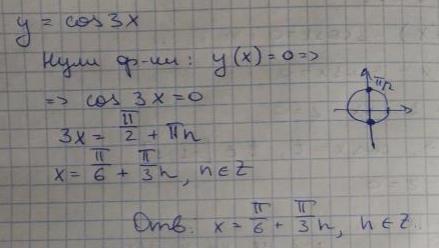 y = cos3x
Нули ф-ии: y(x)=0 =>
=> cos 3x = 0
3x = π/2 + πn
x = π/6 + π/3 n, n∈Z
π/2
Отв: x = π/6 + π/3 n, n∈Z.